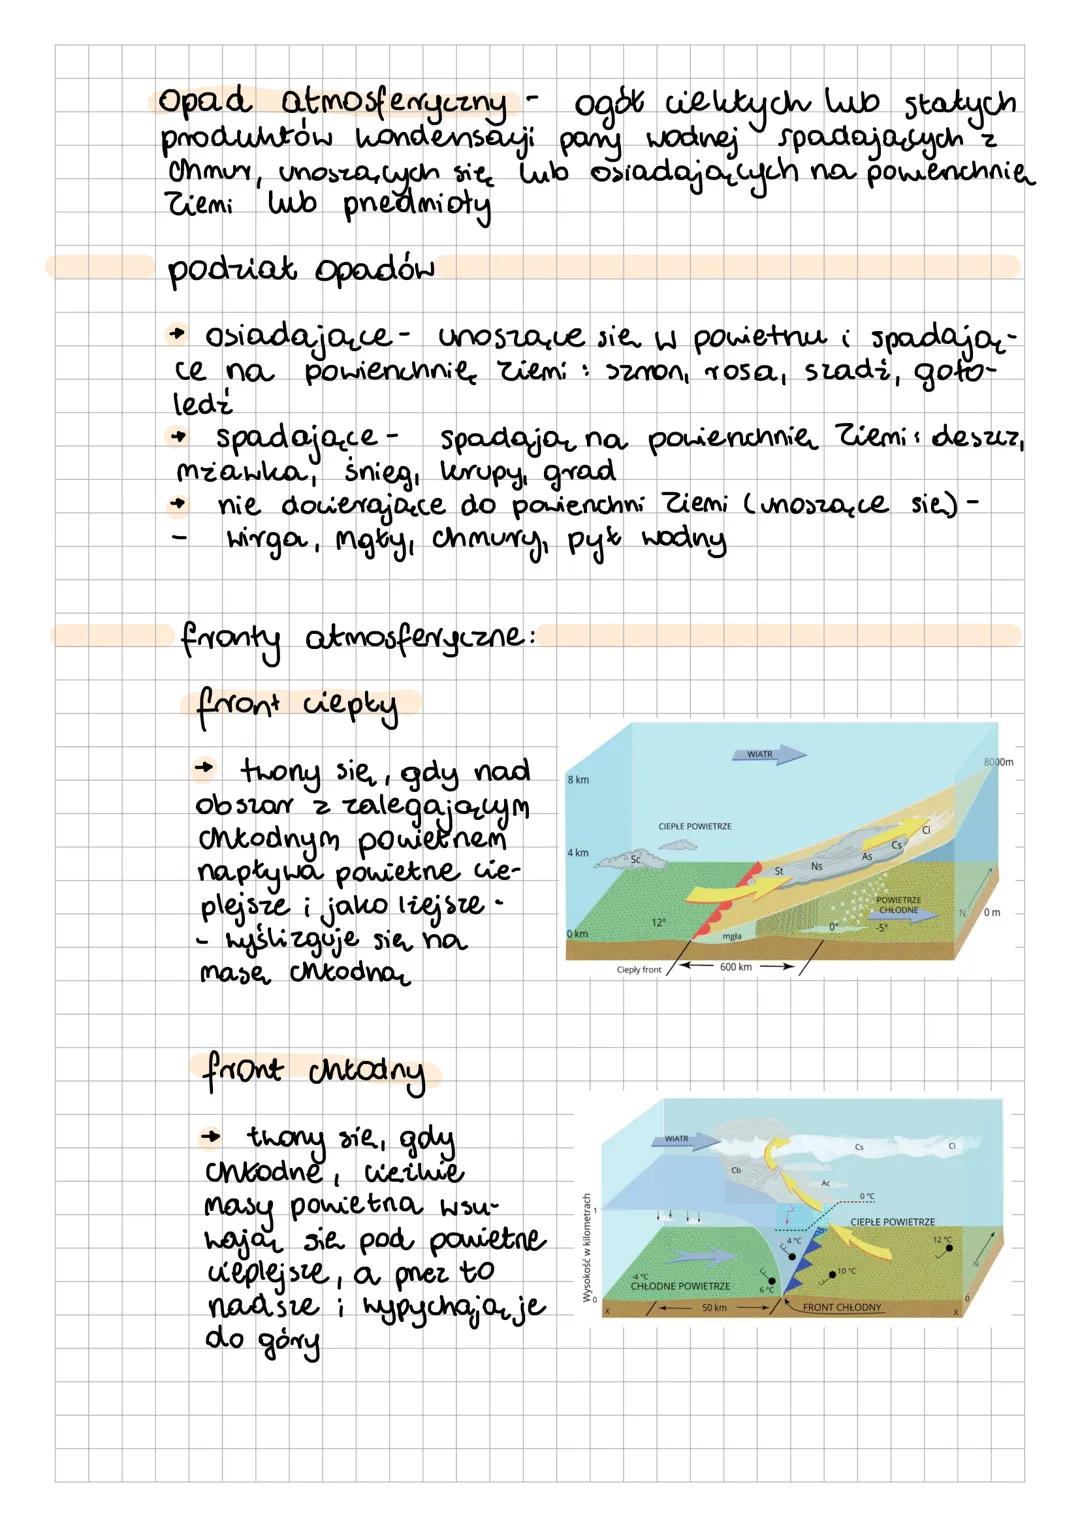 opad atmosferyczny - ogół ciekłych lub stałych
produktów kondensacji pary wodnej spadających z
chmur, unoszących się lub osiadających na powierzchnię
Ziemi lub przedmioty
podział opadów
→ osiadające - unoszące się w powietrzu i spadają-
ce na powierzchnię Ziemi : szron, rosa, szadź, goło-
ledź
→ spadające - spadają na powierzchnię Ziemi: deszcz,
mżawka, śnieg, krupy, grad
→ nie docierające do powierzchni Ziemi (unoszące się) -
- wirga, mgły, chmury, pył wodny
fronty atmosferyczne:
front ciepły
→ tworzy się, gdy nad
obszar z zalegającym
chłodnym powietrzem
napływa powietrze cie-
plejsze i jako lżejsze -
- wyślizguje się na
masę chłodną
WIATR
8000m
8 km
CIEPŁE POWIETRZE
Ci
Cs
4 km
Sc
As
Ns
St
POWIETRZE
CHŁODNE
N
0 m
12°
0°
-5°
0 km
mgła
Ciepły front
600 km
front chłodny
→ tworzy się, gdy
chłodne, cięższe
masy powietrza wsu-
wają się pod powietrze
cieplejsze, a przez to
rzadsze i wypychają je
do góry
WIATR
Cs
Ci
Cb
Ac
0 °C
Wysokość w kilometrach
1
CIEPŁE POWIETRZE
4 °C
12 °C
N
-4 °C
10 °C
CHŁODNE POWIETRZE
6 °C
0
0
X
50 km
FRONT CHŁODNY
X